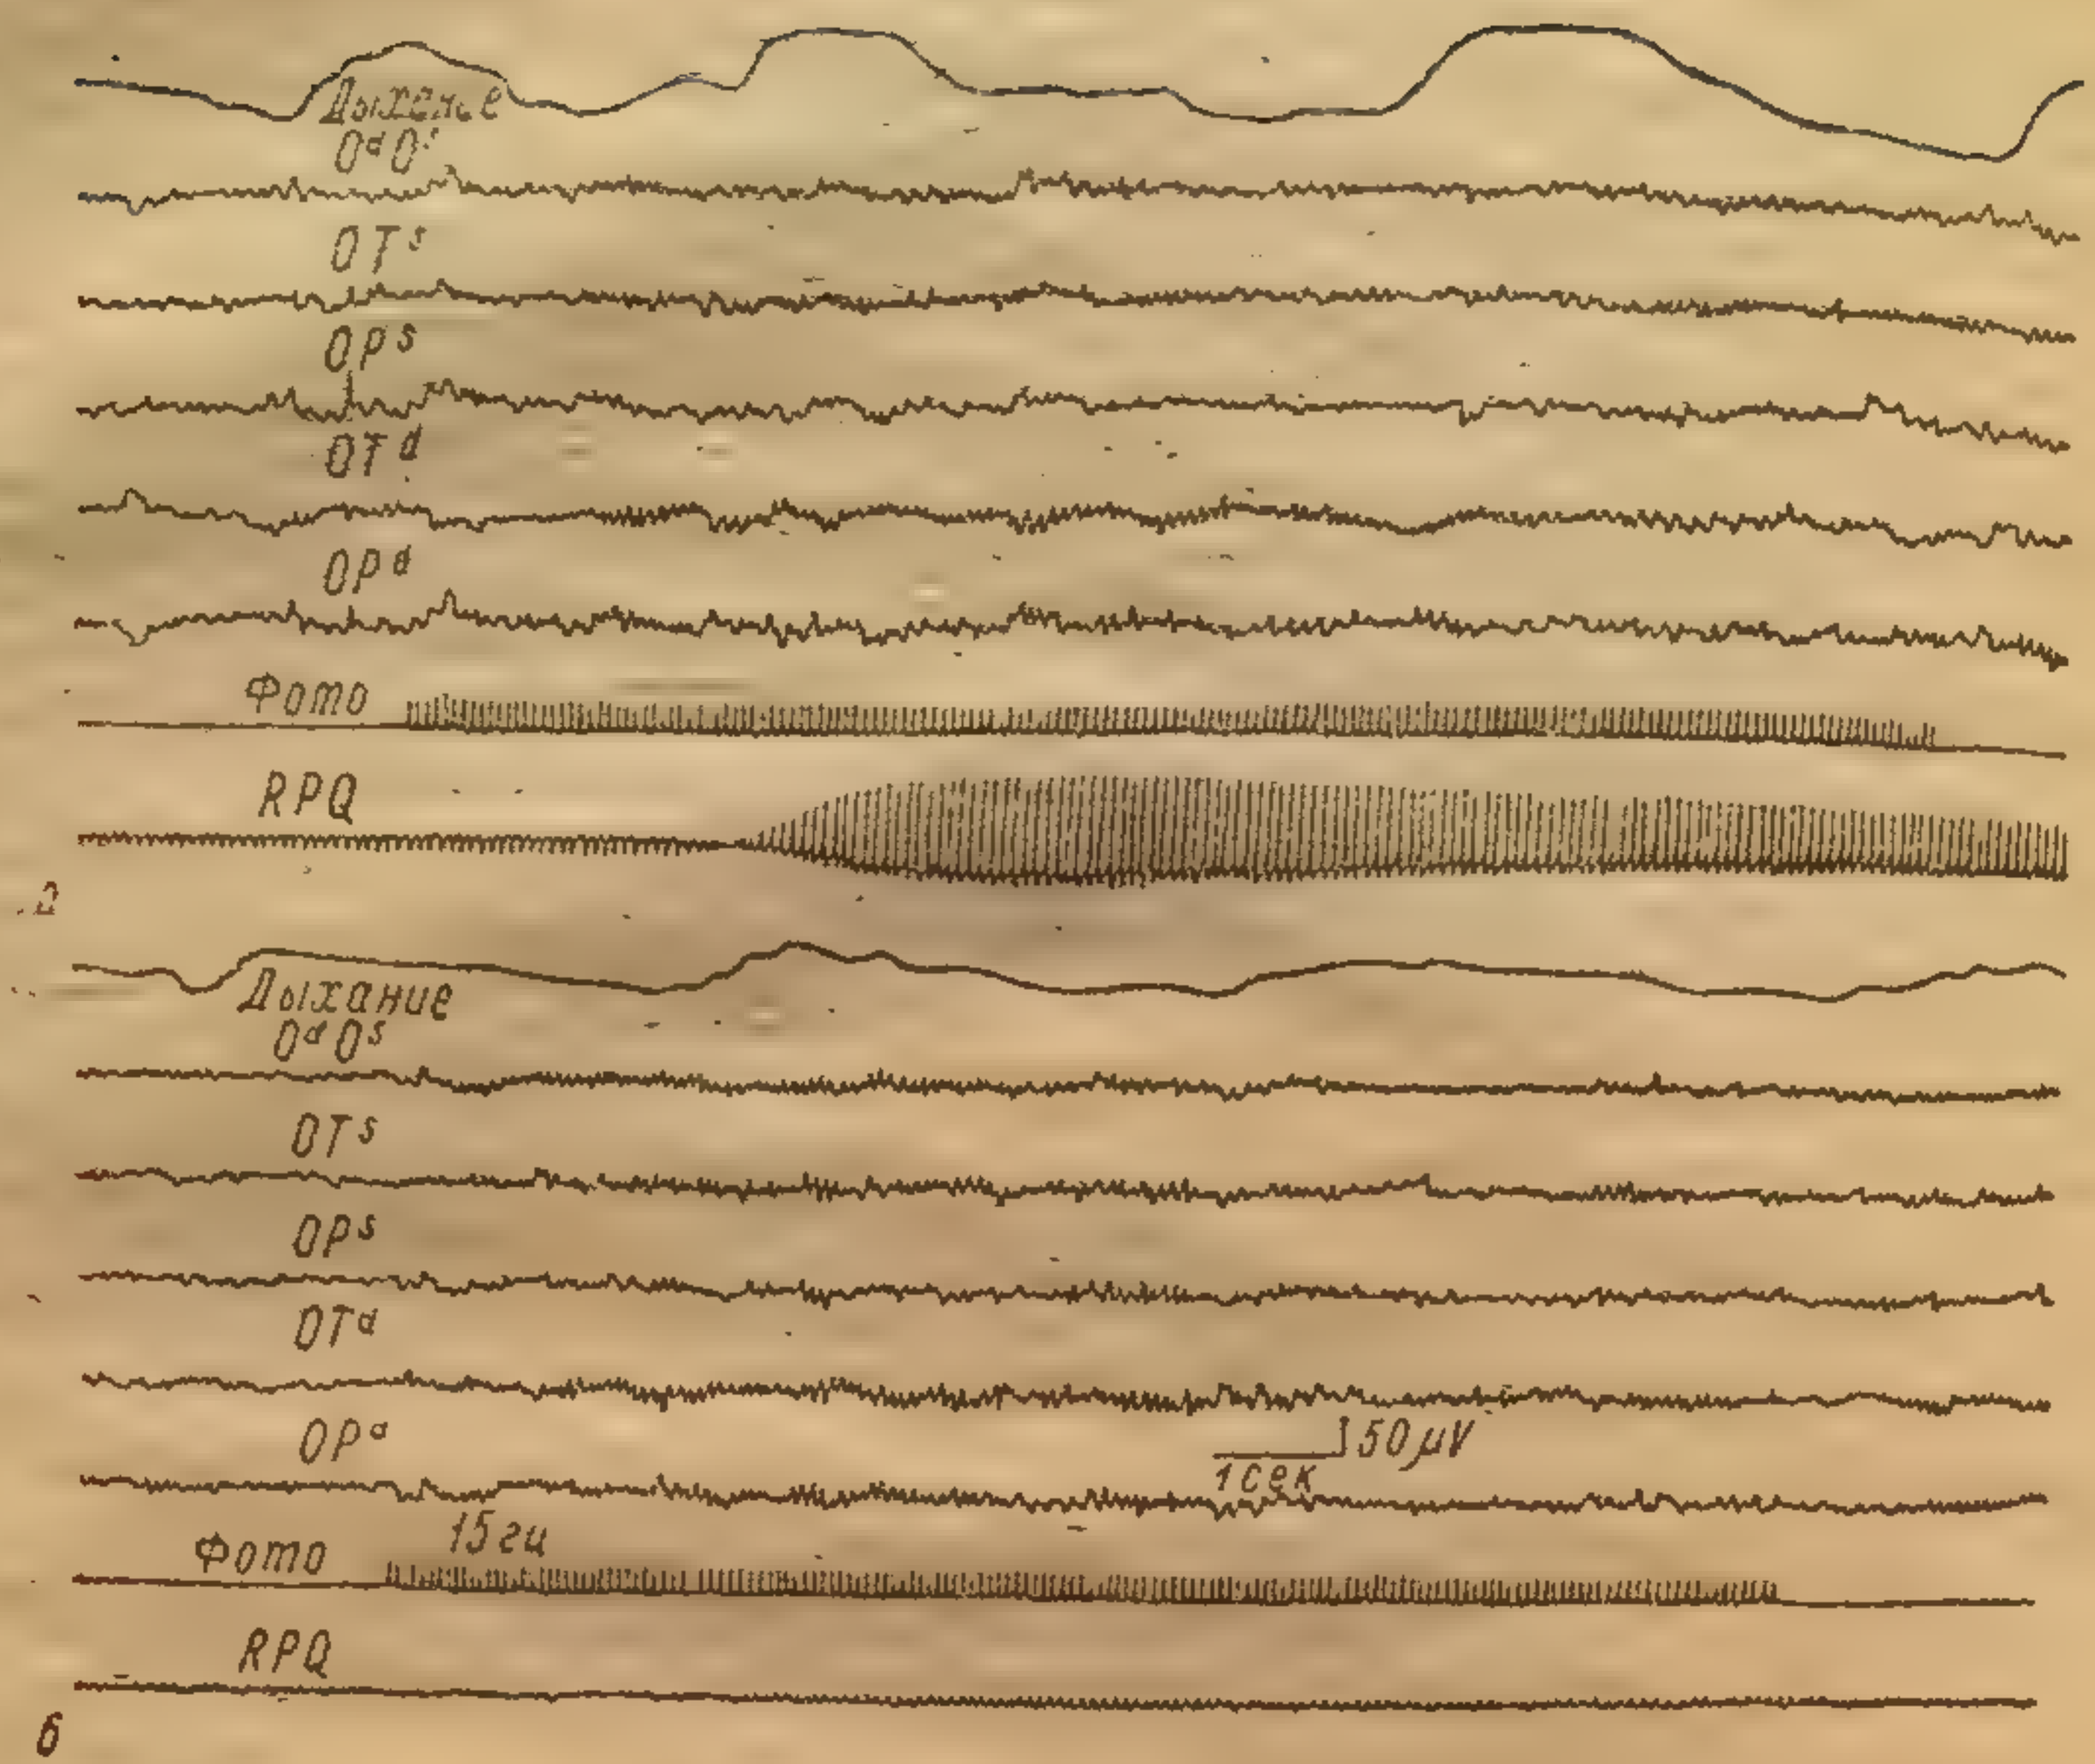 Дыхание
OᵈOˢ
OTˢ
OPˢ
OTᵈ
OPᵈ
Фото
RPQ
а
Дыхание
OᵈOˢ
OTˢ
OPˢ
OTᵈ
OPᵈ
50 μV
1 сек
15 гц
Фото
RPQ
б